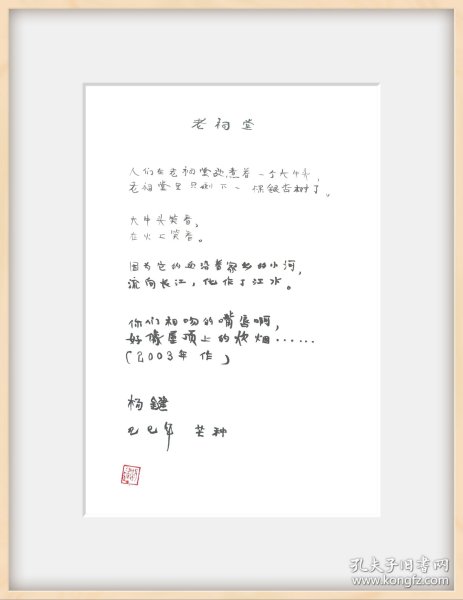 老祠堂
人们在老祠堂边煮着一个大牛头,
老祠堂里只剩下一棵银杏树了。
大牛头笑着,
在火上笑着。
因为它的血沿着家乡的小河,
流向长江,化作了江水。
你们相吻的嘴唇啊,
好像屋顶上的炊烟……
(2003年 作)
杨键
己巳年 芒种
孔夫子旧书网
www.kongfz.com